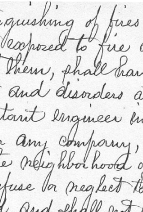 nguishing of fires
exposed to fire
them, shall hav
and disorders a
tant engineer in
any company,
neighborhood o
fuse or neglect to
and shall not